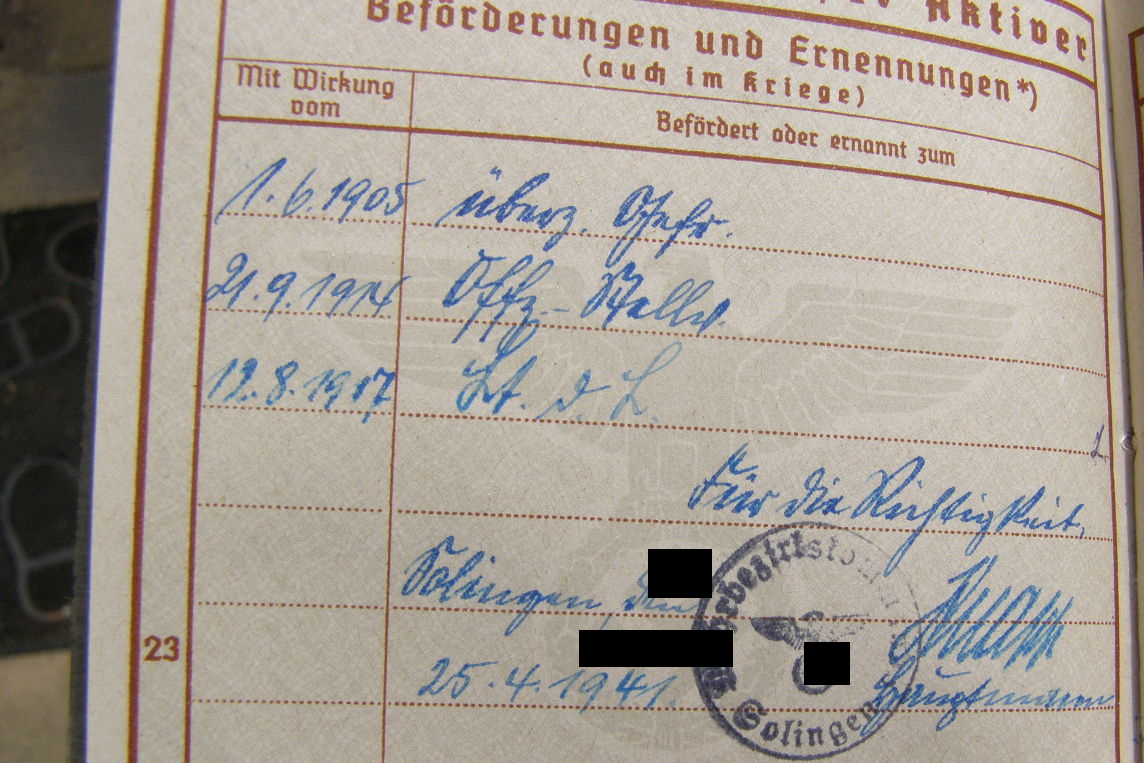 Aktiver
Beförderungen und Ernennungen*)
(auch im Kriege)
Mit Wirkung
vom
Befördert oder ernannt zum
1.6.1905 überz. Gefr.
21.9.1914 Offz.-Stellv.
12.8.1917 Lt. d. L.
Für die Richtigkeit,
Solingen, den
25.4.1941.
Hauptmann
Solingen
23